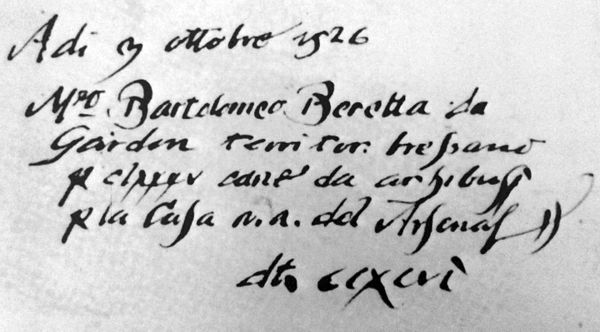 Adi 3 ottobre 1526
Mro. Bartolomeo Beretta da
Gardon territor: bressano
p clxxxv cane da archibusi
p la Casa n.n. del Arsenal
dti. cclxxxxvi